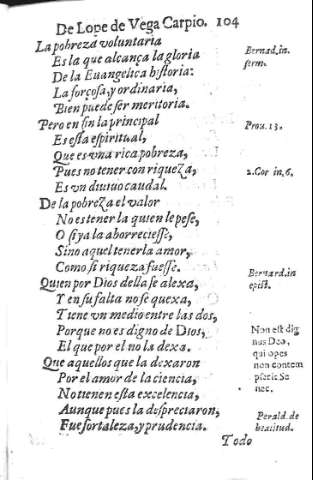 De Lope de Vega Carpio. 104
La pobreza voluntaria
Es la que alcança la gloria
De la Euangelica historia:
La forçosa, y ordinaria,
Bien puede ser meritoria.
Pero en fin la principal
Es esta espiritual,
Que es vna rica pobreza,
Pues no tener con riqueza,
Es vn diuino caudal.
De la pobreza el valor
No es tener la quien le pese,
O si ya la aborreciesse,
Sino aquel tenerla amor,
Como si riqueza fuesse.
Quien por Dios della se alexa,
Y en su falta no se quexa,
Tiene vn medio entre las dos,
Porque no es digno de Dios,
El que por el no la dexa.
Que aquellos que la dexaron
Por el amor de la ciencia,
No tienen esta excelencia,
Aunque pues la despreciaron,
Fue fortaleza, y prudencia.
Todo
Bernad. in.
serm.
Prou. 13.
2. Cor in, 6.
Bernard. in
epist.
Non est dig
nus Deo,
qui opes
non contem
psit: Se
nec.
Perald. de
beatitud.